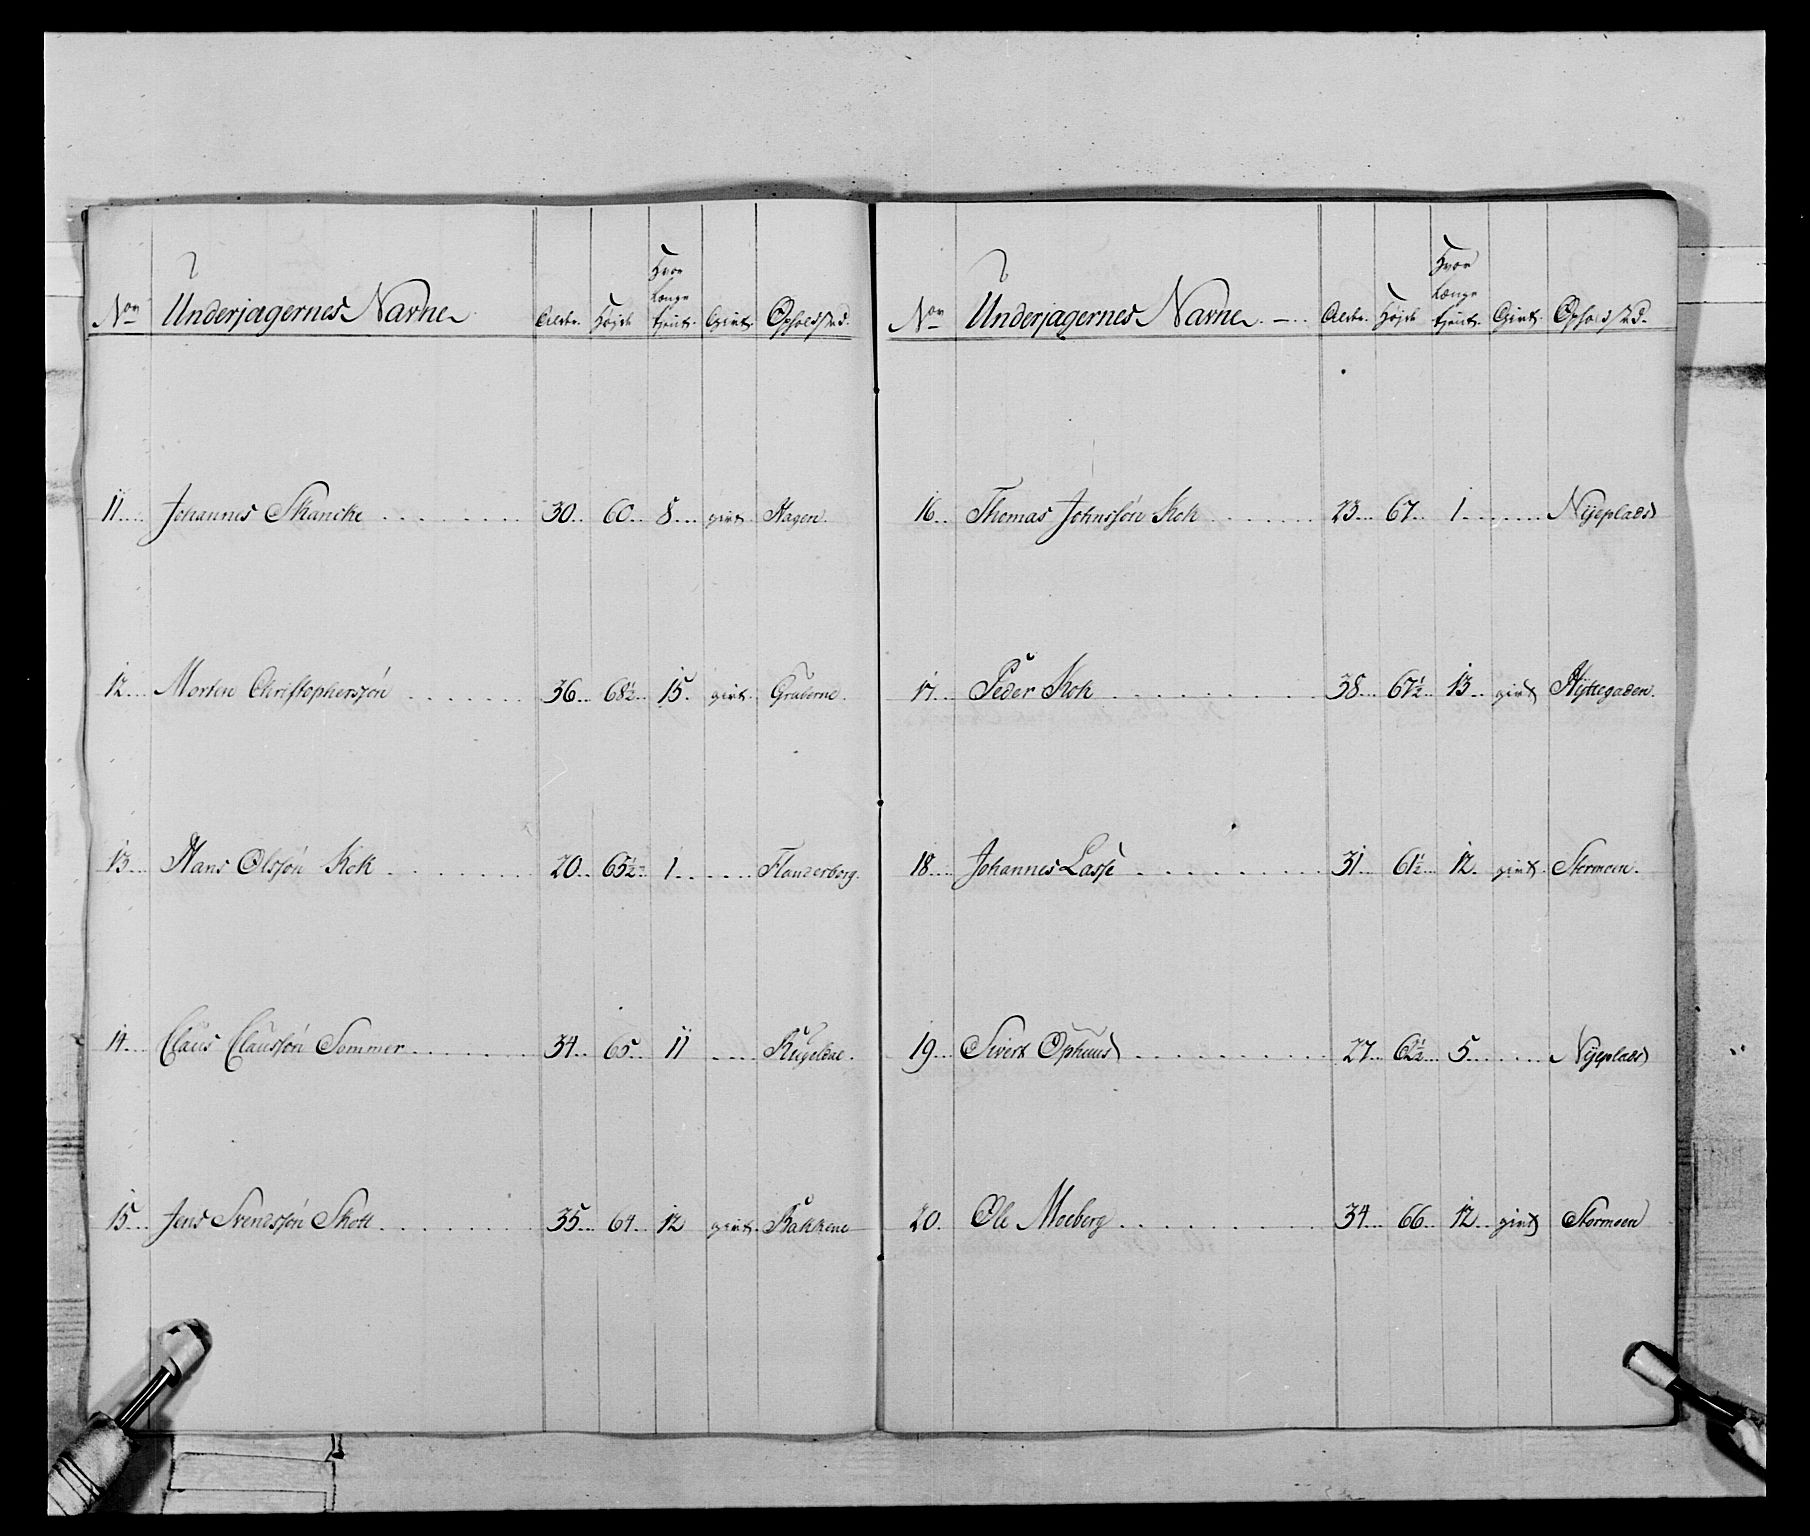 Nor Underjægernes Navne Alder. Højde Hvor længe tjent. Givt. Opholdstæd.
11. Johannes Skancke 30. 60. 8. givt. Hagen.
12. Morten Christophersøn 36. 68½. 15. givt. Gruberne.
13. Hans Olssøn Kok 20. 65½. 1. Flanderborg.
14. Claus Claussøn Sommer 34. 65. 11 Kugeldal.
15. Jens Svendssøn Skott 35. 64. 12 givt. Bakkene
Nor Underjægernes Navne. Alder. Højde Hvor længe tjent. Givt. Opholdstæd.
16. Thomas Johnssøn Kok 23. 67. 1. Nyeplads
17. Peder Kok 38. 67½. 13. givt Hyttegaden.
18. Johannes Lasse 31. 61½. 12. givt. Stormoen.
19. Sivert Ophuus 27. 62½. 5. Nyeplads
20. Ole Moeberg 34. 66. 12. givt Stormoen